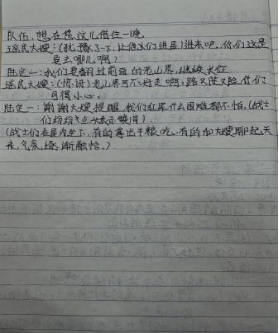 队伍，想在您这儿借住一晚
瑶民大嫂：（犹豫了一下，让他们进屋）进来吧，你们这是
要去哪儿啊？
陆定一：我们要翻过前面的老山界，继续长征
瑶民大嫂：（惊讶）老山界可不好走啊，路又陡又险，你们
可得小心。
陆定一：谢谢大嫂提醒，我们红军什么困难都不怕。（战士
们纷纷点头表示赞同）
（战士们在屋内坐下，有的拿出干粮吃，有的和大嫂聊起天
来，气氛逐渐融洽。）